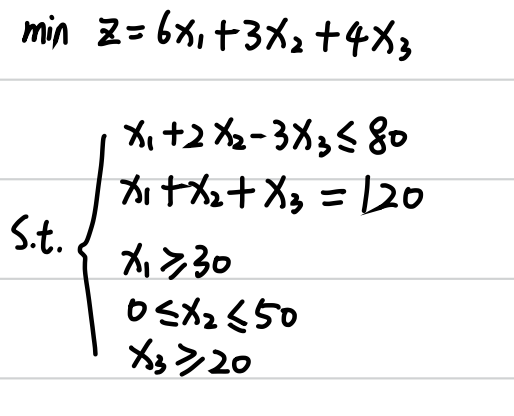 min z = 6x₁ + 3x₂ + 4x₃
x₁ + 2x₂ - 3x₃ ≤ 80
x₁ + x₂ + x₃ = 120
s.t.
x₁ ≥ 30
0 ≤ x₂ ≤ 50
x₃ ≥ 20